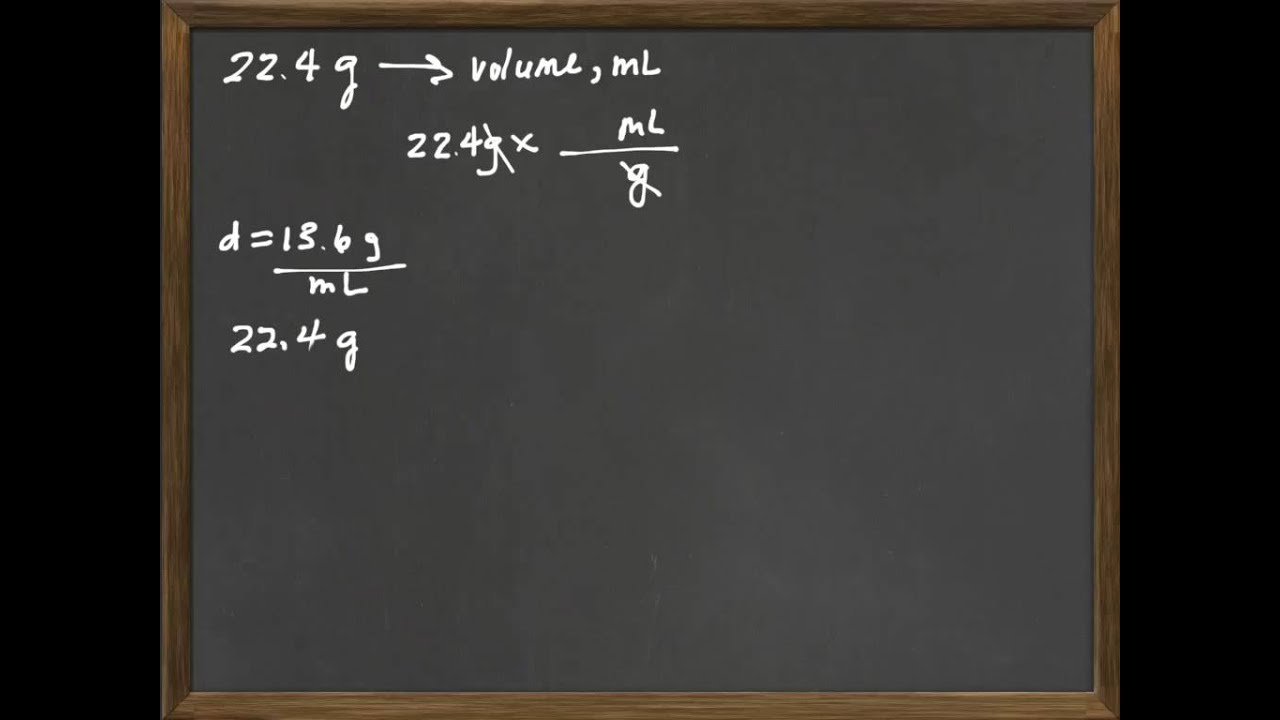 22.4 g → volume, mL
22.4g × mL
g
d = 13.6 g
mL
22.4 g